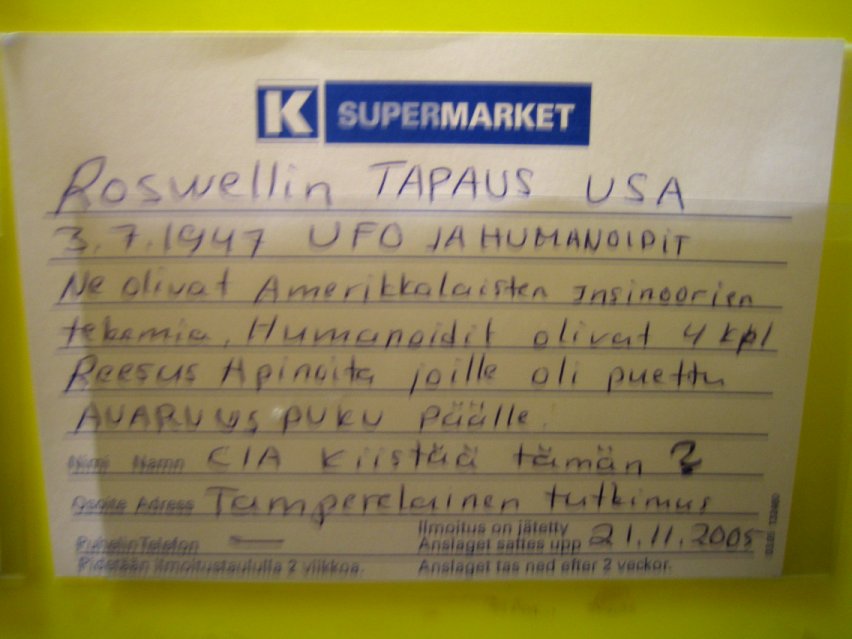 K SUPERMARKET
Roswellin TAPAUS USA
3.7.1947 UFO JA HUMANOIDIT
Ne olivat Amerikkalaisten insinoorien
tekemia, Humanoidit olivat 4 kpl
Reesus Apinoita joille oli puettu
AVARUUS PUKU Päälle.
Nimi Namn CIA kiistää tämän ?
Osoite Adress Tamperelainen tutkimus
Ilmoitus on jätetty
Puhelin Telefon — Anslaget sattes upp 21.11.2005
Pidetään ilmoitustaululla 2 viikkoa. Anslaget tas ned efter 2 veckor.